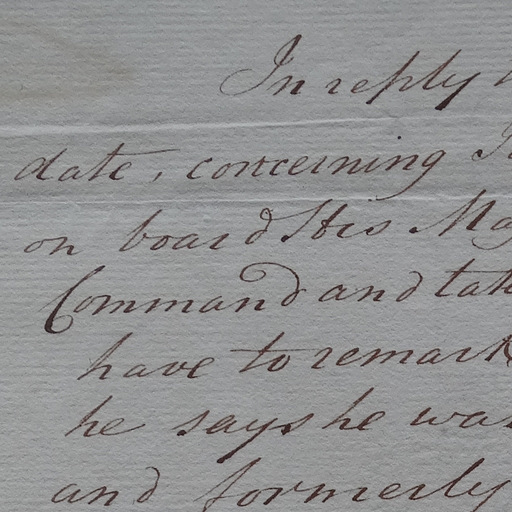 In reply
date, concerning
on board His
Command and
have to remark
he says he was
and formerly